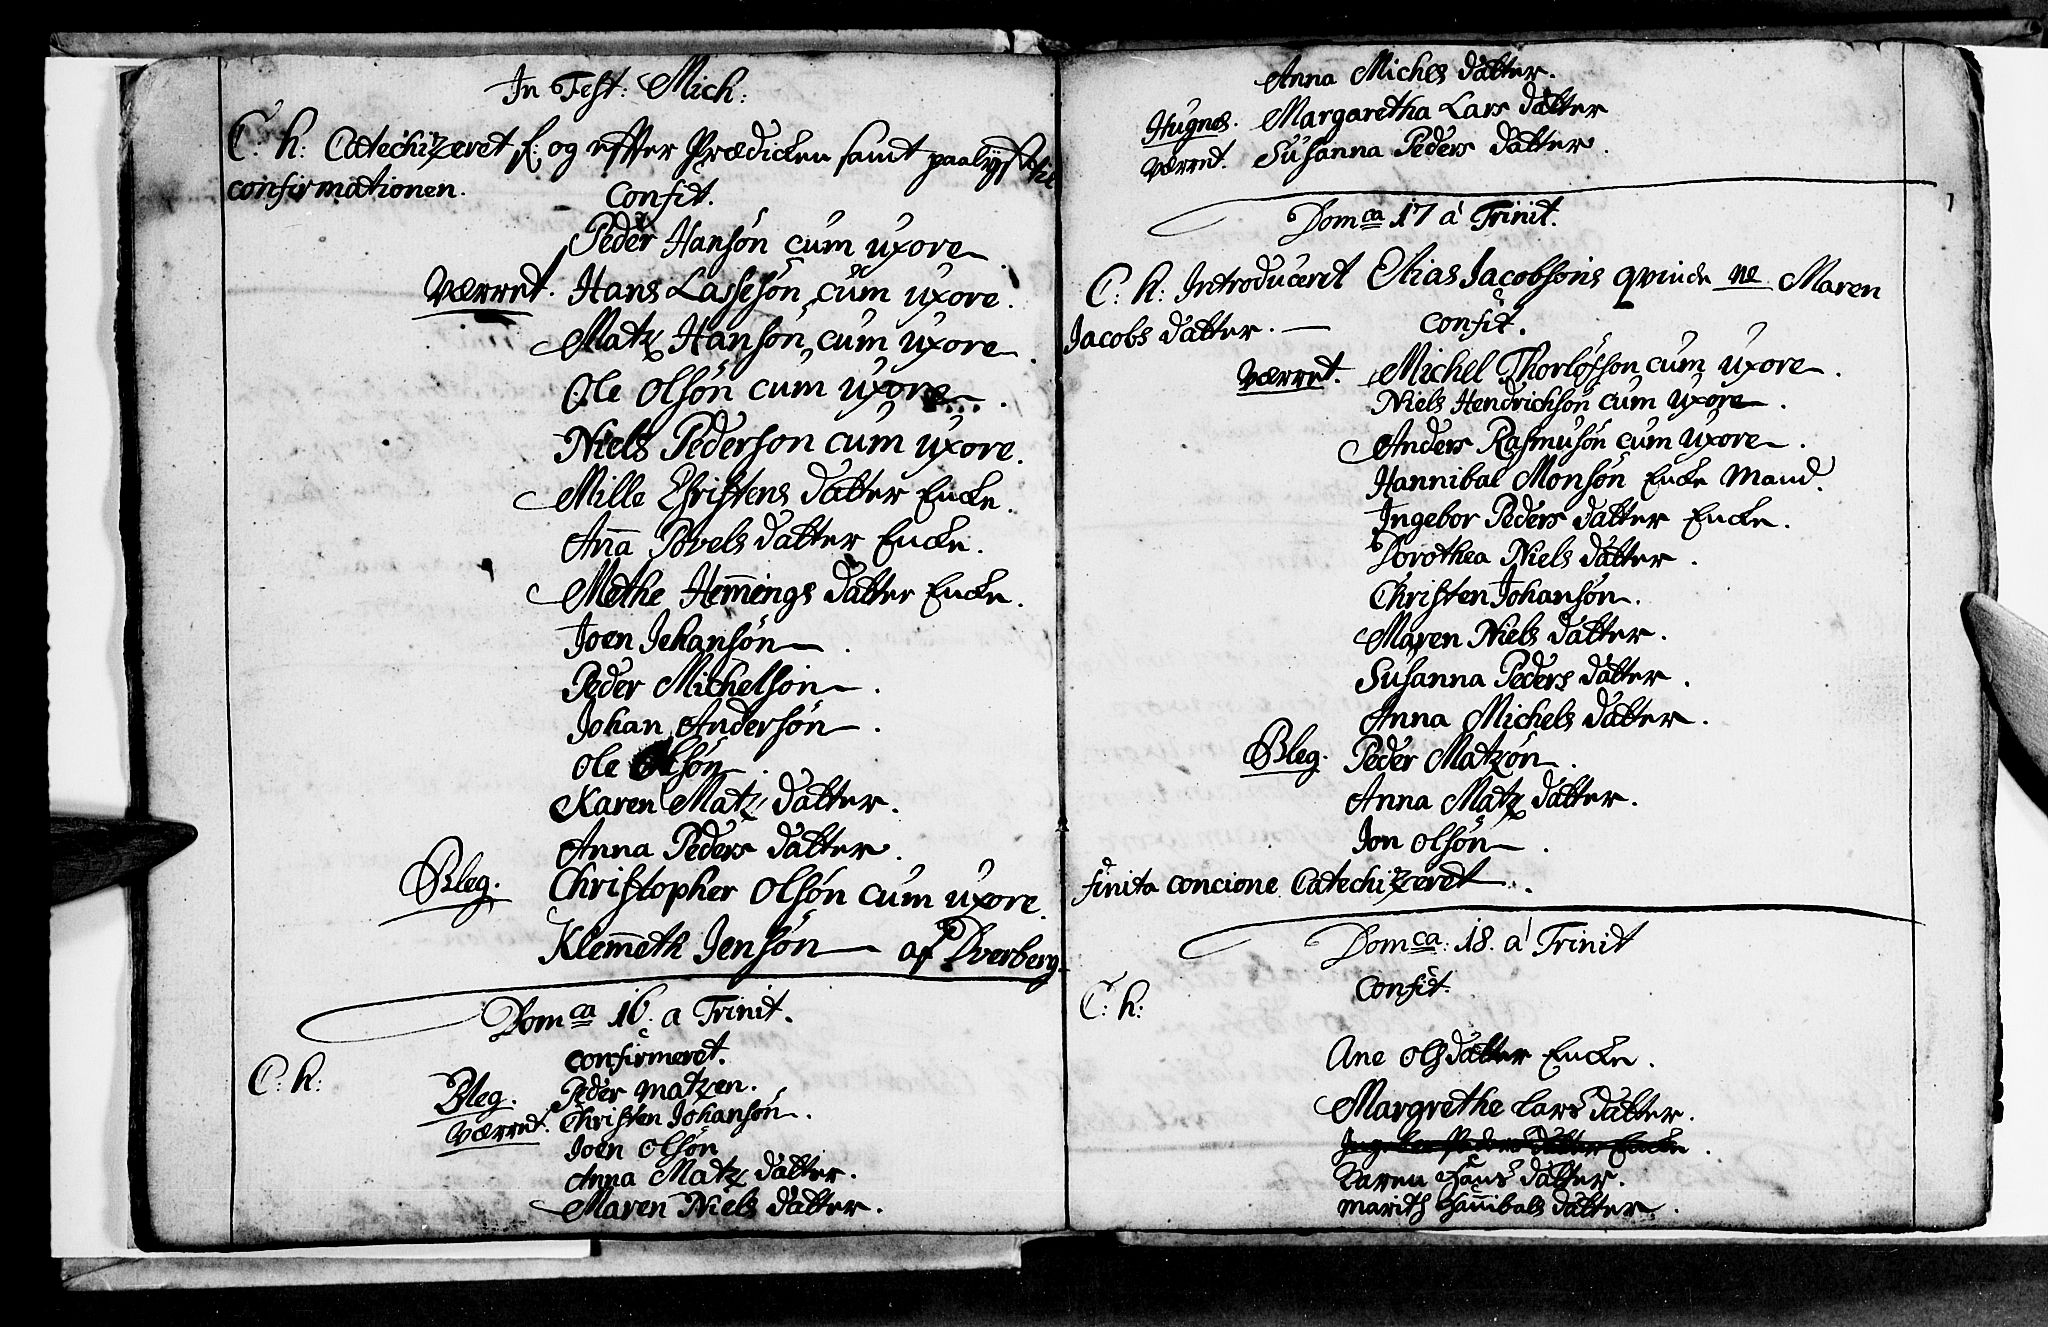 In Fest: Mich:
C. h: Catechizeret f: og efter Prædicken samt paalyst
confirmationen.
Confit.
Peder Hansön cum uxore
Værret. Hans Lassesön cum uxore.
Matz Hansön cum uxore.
Ole Olsön cum uxore.
Niels Pederson cum uxore.
Mille Christens datter Encke.
Aña Povels datter Encke.
Methe Hem̅ings datter Encke.
Joen Jehansön.
Peder Michelsön.
Johan Andersön.
Ole Olsön.
Karen Matz datter.
Anna Peders datter.
Bleg. Christopher Olsön cum uxore.
Klem̅eth Jensön af Dverberg.
Dom ca 16. a Trinit.
C: h: confirmeret.
Bleg. Peder matzen.
Værret. Christen Johansön.
Joen Olsön
Anna Matz datter.
Maren Niels datter.
Anna Michels datter.
Hugnes. Margaretha Lars datter
Værret. Susanna Peders datter.
Dom ca 17 a Trinit.
C: h: Introduceret Elias Jacobsöns qvinde ne Maren
Jacobs datter.
Confit.
Værret. Michel Thorlöfson cum uxore.
Niels Hendrichsön cum uxore.
Anders Rasmusön cum uxore.
Hannibal Monsön Encke Mand.
Ingebor Peders datter Encke.
Dorothea Niels datter.
Christen Johansön.
Maren Niels datter.
Susanna Peders datter.
Anna Michels datter.
Bleg. Peder Matzön.
Anna Matz datter.
Jon Olsön.
finita concione Catechizeret.
Dom ca: 18. a Trinit
Confit.
C: h:
Ane Olsdatter Encke.
Margrethe Lars datter.
Ingebor Peders datter Encke.
Karen Hans datter.
Marith Han̅ibals datter.